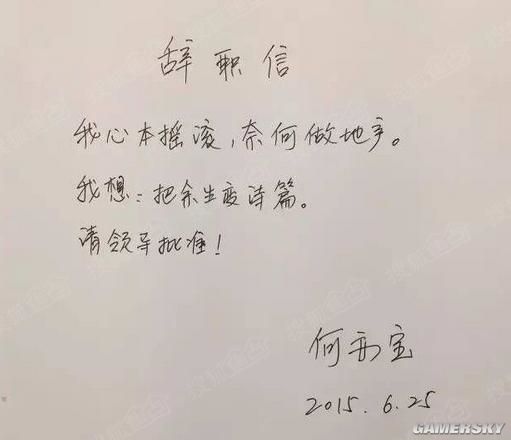 辞职信
我心本摇滚,奈何做地产。
我想:把余生变诗篇。
请领导批准!
何亦宝
2015.6.25
GAMERSKY